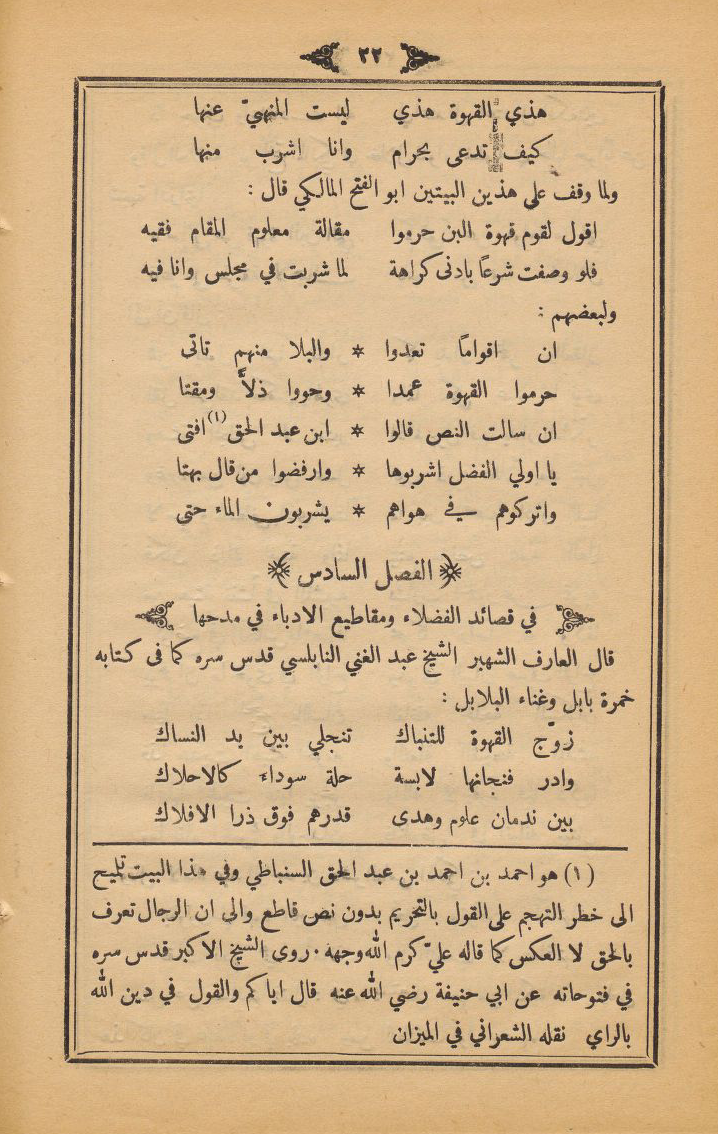 ٢٢
هذي القهوة هذي ليست المنهيّ عنها
كيف تدعى بحرام وانا اشرب منها
ولما وقف على هذين البيتين ابو الفتح المالكي قال :
اقول لقوم قهوة البن حرموا مقالة معلوم المقام فقيه
فلو وصفت شرعاً بادنى كراهة لما شربت في مجلس وانا فيه
ولبعضهم :
ان اقواماً تعدوا * والبلا منهم تاتى
حرموا القهوة عمدا * وحووا ذلاً ومقتا
ان سالت النص قالوا * ابن عبد الحق (١) افتى
يا اولي الفضل اشربوها * وارفضوا من قال بهتا
واتركوهم في هواهم * يشربون الماء حتى
الفصل السادس
في قصائد الفضلاء ومقاطيع الادباء في مدحها
قال العارف الشهير الشيخ عبد الغني النابلسي قدس سره كما في كتابه
خمرة بابل وغناء البلابل :
زوّج القهوة للتنباك تنجلي بين يد النساك
وادر فنجانها لابسة حلة سوداء كالاحلاك
بين ندمان علوم وهدى قدرهم فوق ذرا الافلاك
(١) هو احمد بن احمد بن عبد الحق السنباطي وفي هذا البيت تلميح
الى خطر التهجم على القول بالتحريم بدون نص قاطع والى ان الرجال تعرف
بالحق لا العكس كما قاله عليّ كرم الله وجهه . روى الشيخ الاكبر قدس سره
في فتوحاته عن ابي حنيفة رضي الله عنه قال اياكم والقول في دين الله
بالراي نقله الشعراني في الميزان